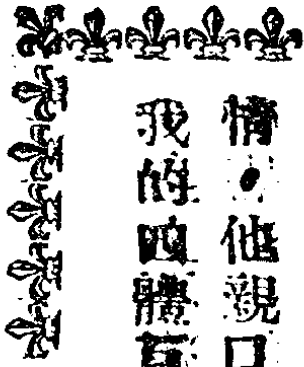 情，他親口
我的四體百